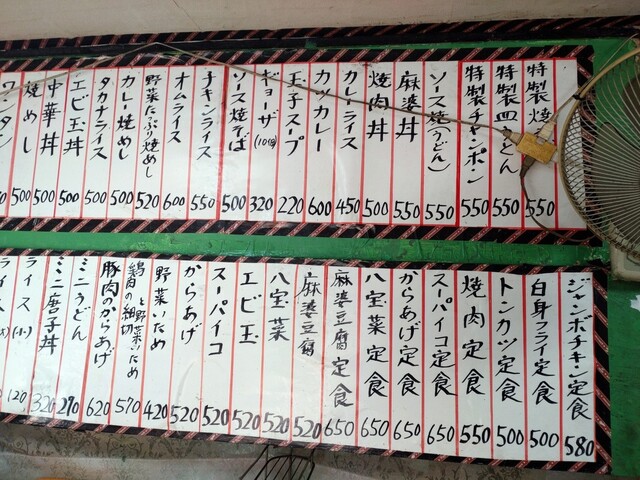 特製焼 550
特製皿うどん 550
特製チャンポン 550
ソース焼(うどん) 550
麻婆丼 550
焼肉丼 500
カレーライス 450
カツカレー 600
玉子スープ 220
ギョーザ(10個) 320
ソース焼そば 500
チキンライス 550
オムライス 600
野菜たっぷり焼めし 520
カレー焼めし 500
タカナライス 500
エビ玉丼 500
中華丼 500
焼めし 500
ワンタン
ジャンボチキン定食 580
白身フライ定食 500
トンカツ定食 500
焼肉定食 550
スーパイコ定食 650
からあげ定食 650
八宝菜定食 650
麻婆豆腐定食 650
麻婆豆腐 520
八宝菜 520
エビ玉 520
スーパイコ 520
からあげ 520
野菜いため 420
鶏肉の細切と野菜いため 570
豚肉のからあげ 620
ミニうどん 270
ミニ唐子丼 320
ライス(小) 120
ライス(大)